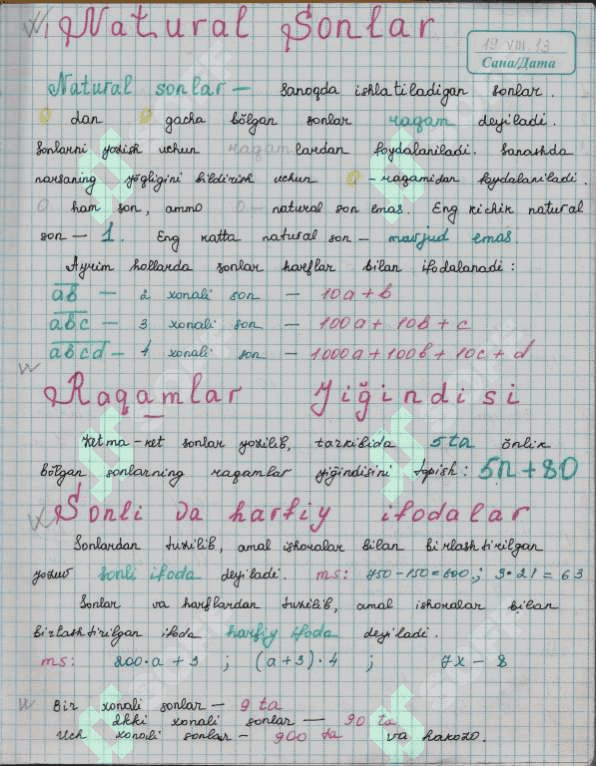 Natural Sonlar
19.VIII.13
Сана/Дата
Natural sonlar — sanoqda ishlatiladigan sonlar.
0 dan 9 gacha bölgan sonlar raqam deyiladi.
Sonlarni yozish uchun raqamlardan foydalaniladi. Sanashda
narsaning yöqligini bildirish uchun 0 - raqamidan foydalaniladi.
0 ham son, ammo 0 - natural son emas. Eng kichik natural
son - 1. Eng katta natural son - mavjud emas.
Ayrim hollarda sonlar harflar bilan ifodalanadi:
a̅b̅ — 2 xonali son — 10a + b
a̅b̅c̅ — 3 xonali son — 100a + 10b + c
a̅b̅c̅d̅ — 4 xonali son — 1000a + 100b + 10c + d
Raqamlar Yiğindisi
Ketma-ket sonlar yozilib, tarkibida 5 ta önlik
bölgan sonlarning raqamlar yiğindisini topish: 5n + 80
Sonli va harfiy ifodalar
Sonlardan tuzilib, amal ishoralar bilan birlashtirilgan
yozuv sonli ifoda deyiladi. ms: 750 - 150 = 600; 3 · 21 = 63
Sonlar va harflardan tuzilib, amal ishoralar bilan
birlashtirilgan ifoda harfiy ifoda deyiladi.
ms: 200 · a + 3 ; (a + 3) · 4 ; 7x - 8
Bir xonali sonlar — 9 ta
Ikki xonali sonlar — 90 ta
Uch xonali sonlar — 900 ta va hakozo.